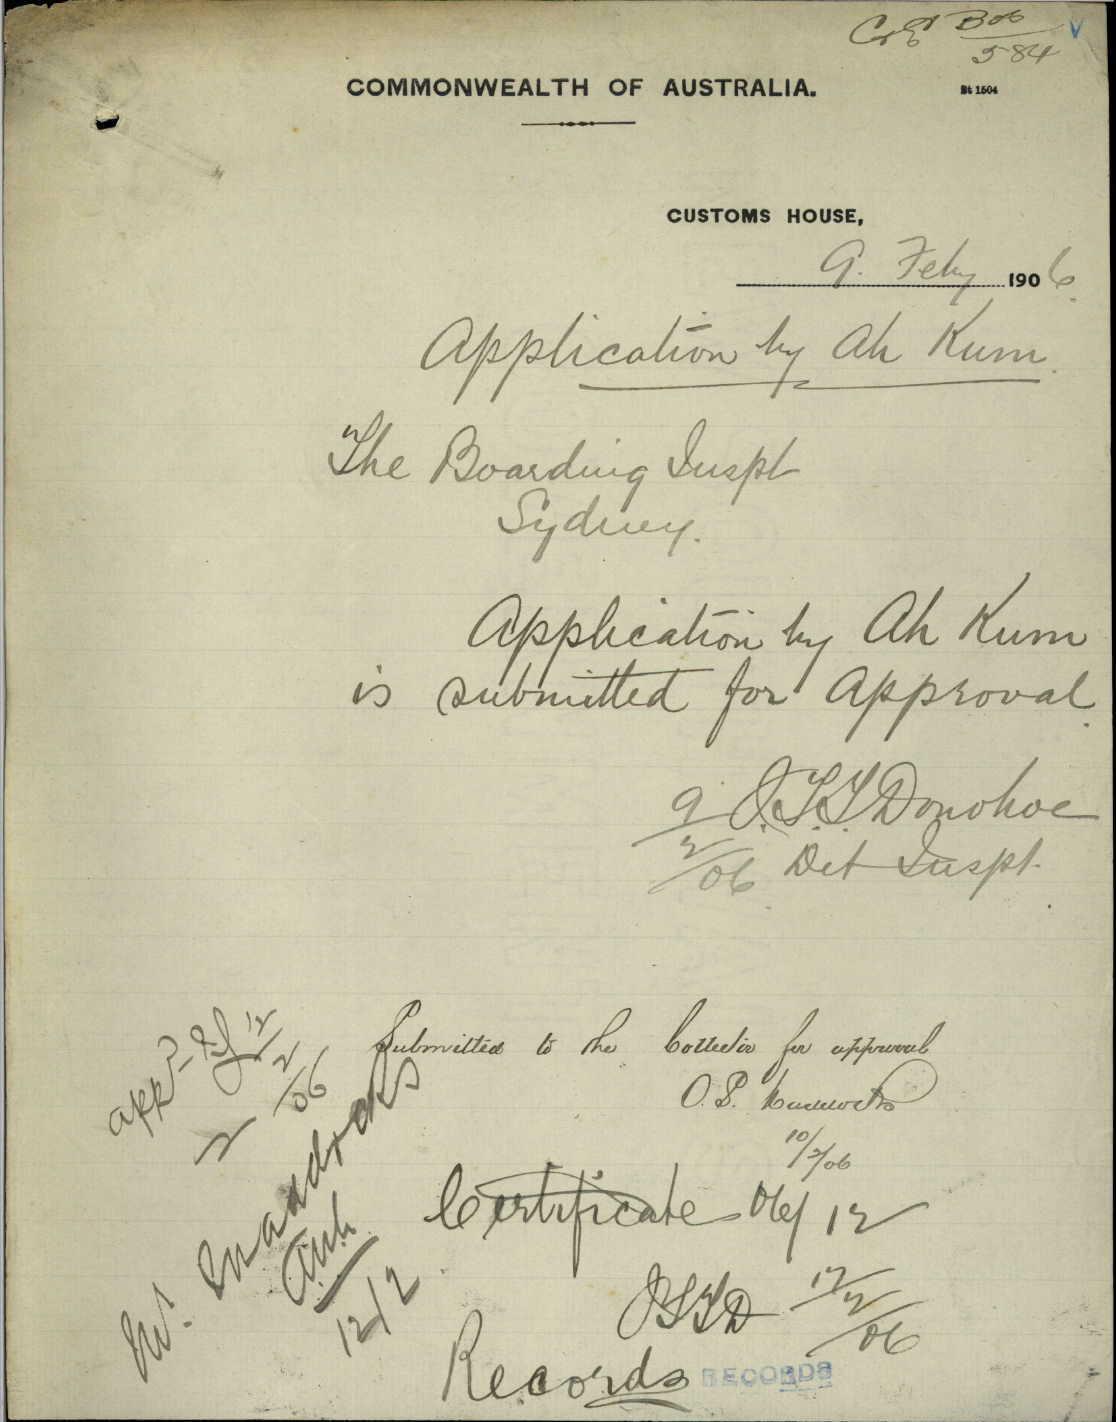 C & E B06
584
COMMONWEALTH OF AUSTRALIA.
Bt 1504
CUSTOMS HOUSE,
9. Feby 1906.
Application by Ah Kum.
The Boarding Inspt
Sydney.
Application by Ah Kum
is submitted for Approval.
9/2/06 J.T.T. Donohoe
Det Inspt.
Submitted to the Collector for approval
O. S.
10/2/06
appd 12/2/06
Mr. Maddocks
12/2
Certificate 06/12
JTTD 12/2/06
Records
RECORDS